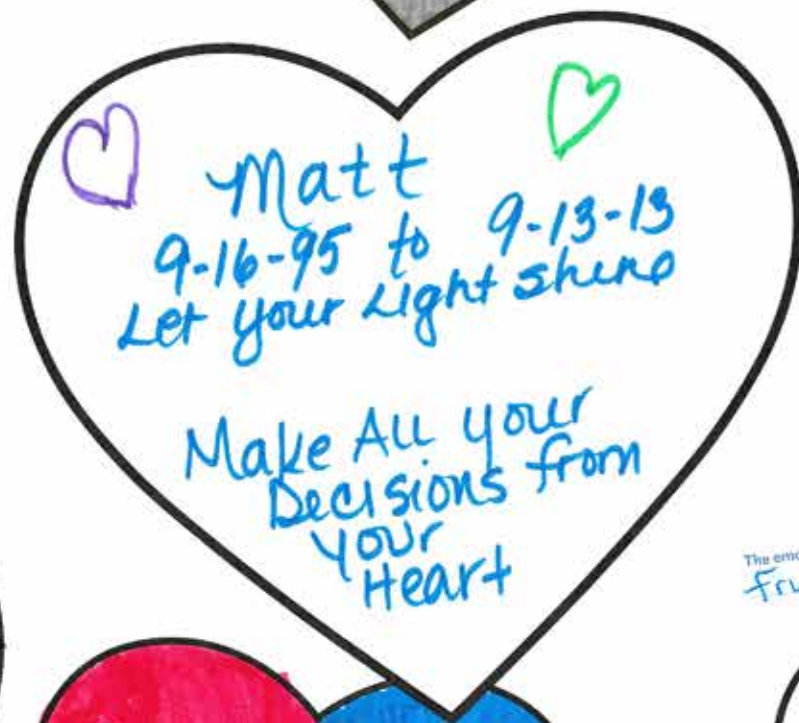 Matt
9-16-95 to 9-13-13
Let your Light shine
Make All your
Decisions from
your
Heart
The emo
fru